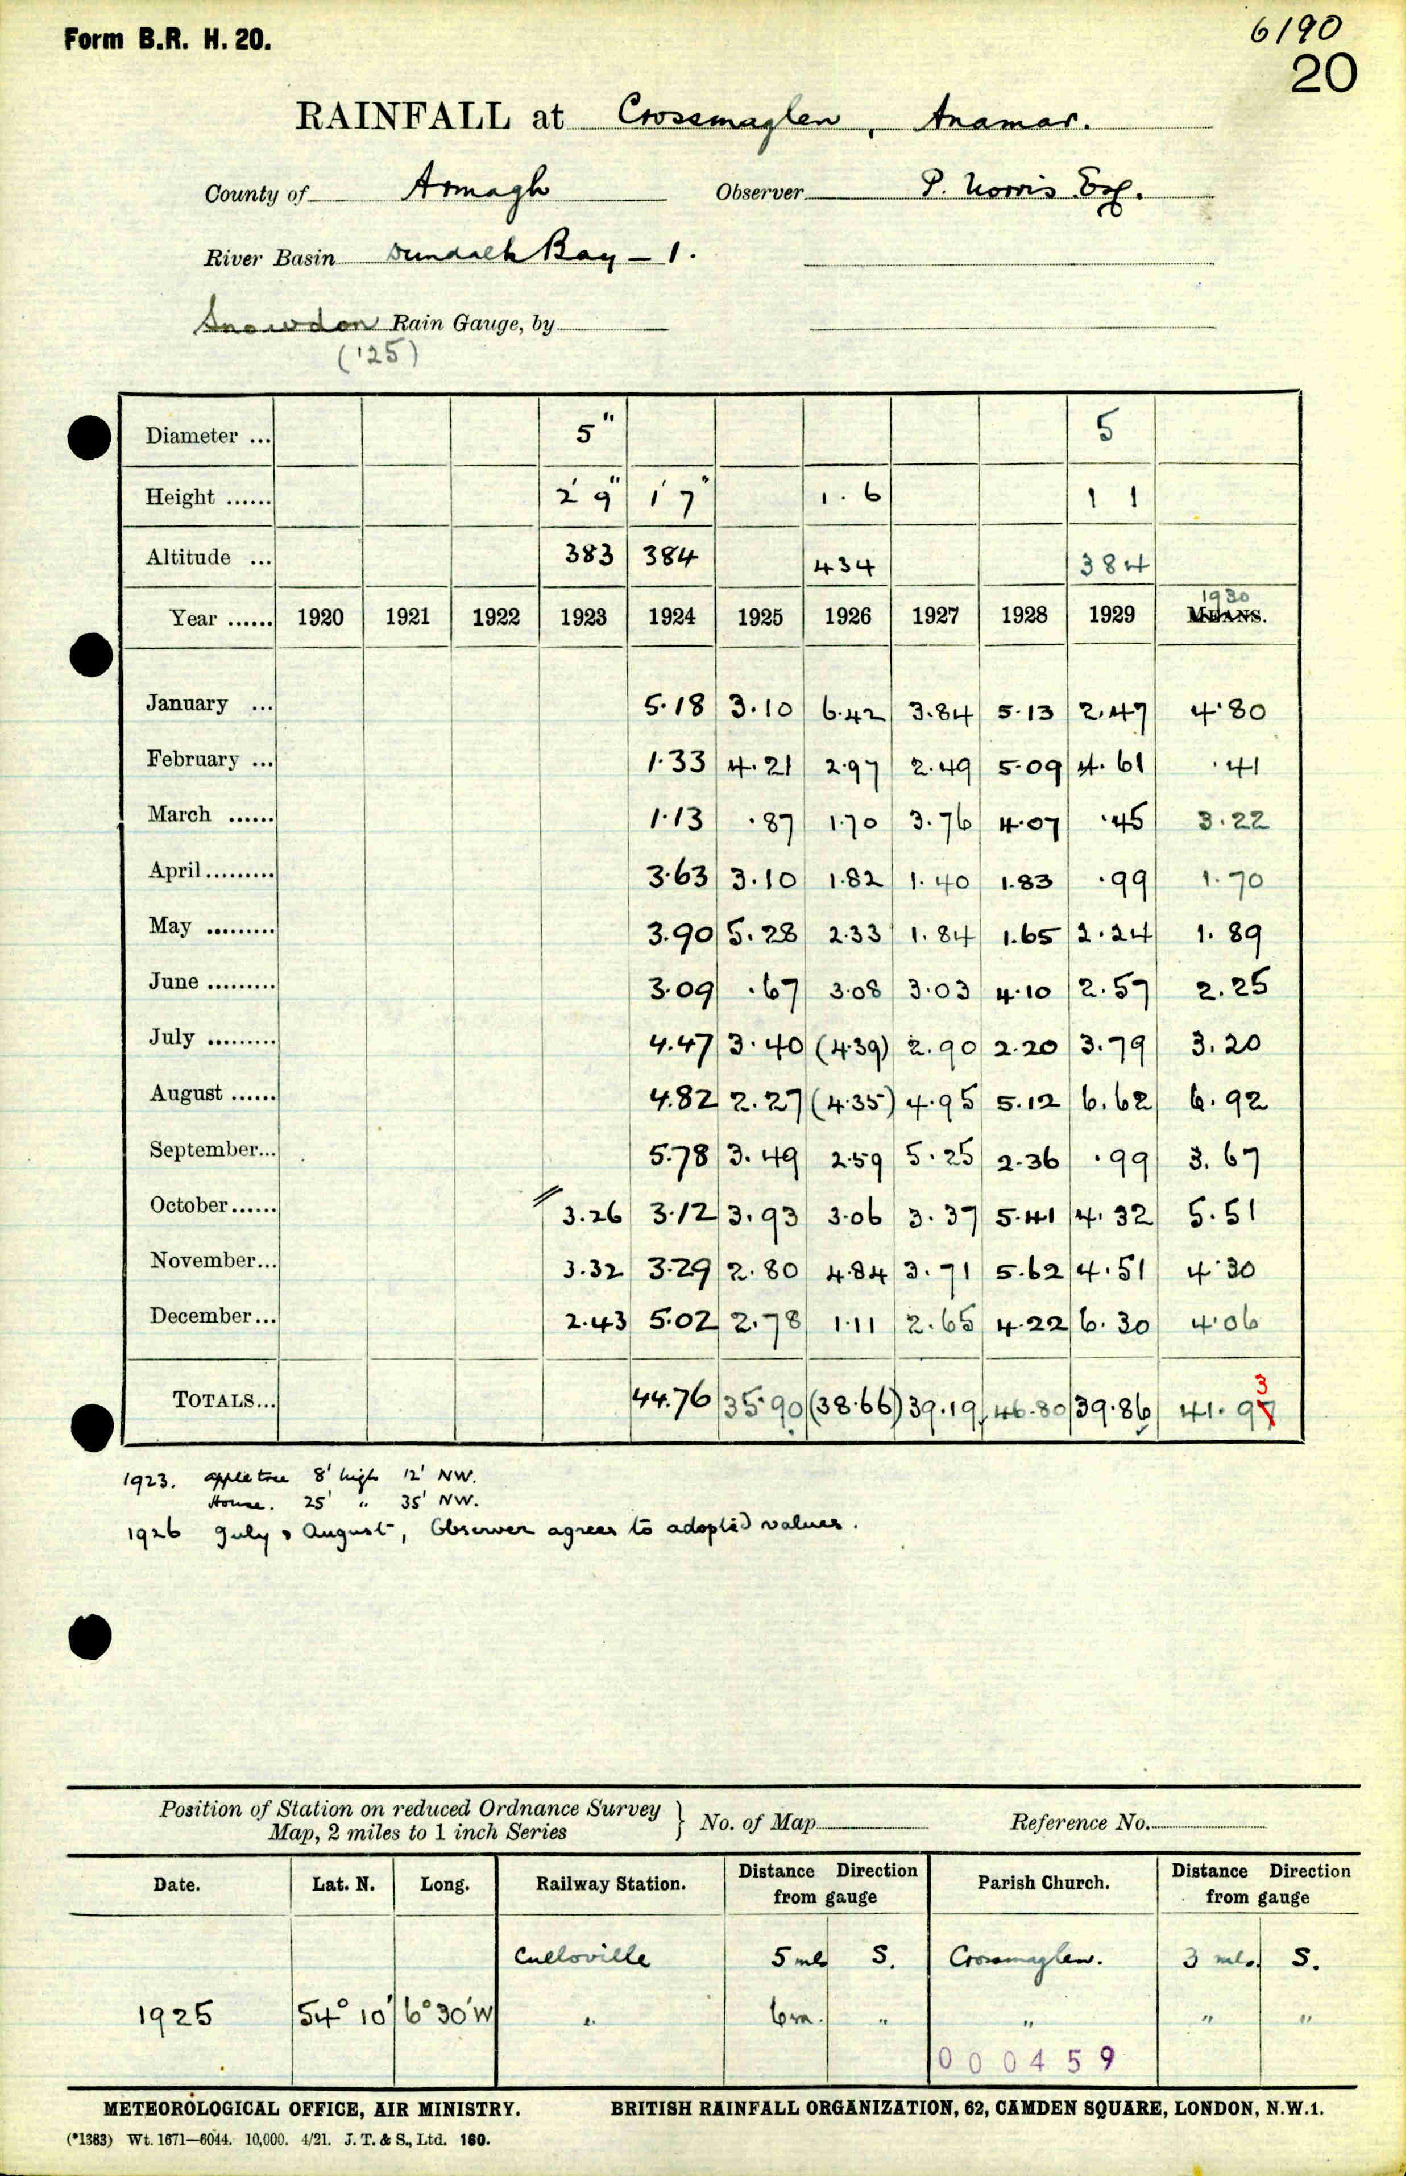 Form B.R. H. 20.
6190
20
RAINFALL at Crossmaglen, Anamar.
County of Armagh Observer P. Norris Esq.
River Basin Dundalk Bay - 1.
Snowdon Rain Gauge, by
('125)
Diameter ... 5" 5
Height ...... 2' 9" 1' 7" 1. 6 1 1
Altitude ... 383 384 434 384
1930
Year ...... 1920 1921 1922 1923 1924 1925 1926 1927 1928 1929 MEANS.
January ... 5.18 3.10 6.42 3.84 5.13 2.47 4.80
February ... 1.33 4.21 2.97 2.49 5.09 4.61 .41
March ...... 1.13 .87 1.70 3.76 4.07 .45 3.22
April ......... 3.63 3.10 1.82 1.40 1.83 .99 1.70
May ......... 3.90 5.28 2.33 1.84 1.65 2.24 1.89
June ......... 3.09 .67 3.08 3.03 4.10 2.57 2.25
July ......... 4.47 3.40 (4.39) 2.90 2.20 3.79 3.20
August ...... 4.82 2.27 (4.35) 4.95 5.12 6.62 6.92
September... 5.78 3.49 2.59 5.25 2.36 .99 3.67
October ...... 3.26 3.12 3.93 3.06 3.37 5.41 4.32 5.51
November... 3.32 3.29 2.80 4.84 3.71 5.62 4.51 4.30
December... 2.43 5.02 2.78 1.11 2.65 4.22 6.30 4.06
3
TOTALS... 44.76 35.90 (38.66) 39.19 46.80 39.86 41.97
1923. apple tree 8' high 12' NW.
House. 25' " 35' NW.
1926 July & August, Observer agrees to adopted values.
Position of Station on reduced Ordnance Survey
Map, 2 miles to 1 inch Series } No. of Map Reference No.
Date. Lat. N. Long. Railway Station. Distance Direction from gauge Parish Church. Distance Direction from gauge
Culloville 5 mls S. Crossmaglen. 3 mls. S.
1925 54° 10' 6° 30' W " 6 m. " " " "
000459
METEOROLOGICAL OFFICE, AIR MINISTRY. BRITISH RAINFALL ORGANIZATION, 62, CAMDEN SQUARE, LONDON, N.W.1.
(*1383) Wt. 1671—6044. 10,000. 4/21. J. T. & S., Ltd. 160.